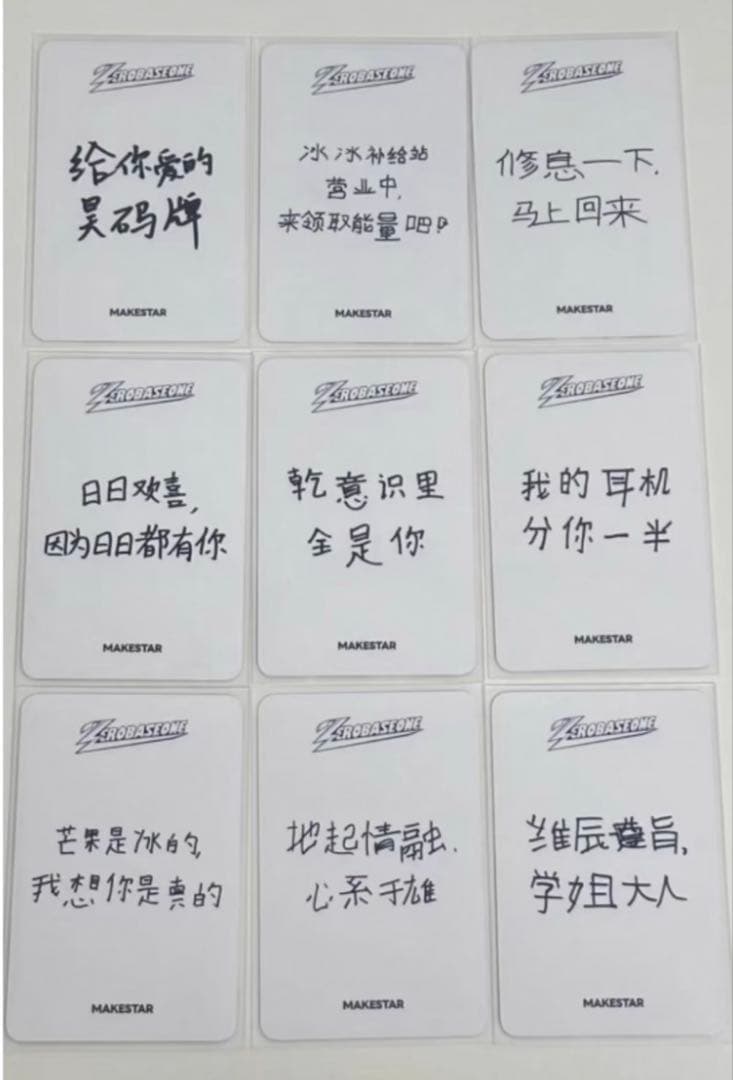 ZEROBASEONE
给你爱的
昊码牌
MAKESTAR
ZEROBASEONE
冰冰补给站
营业中,
来领取能量吧!
MAKESTAR
ZEROBASEONE
修息一下,
马上回来
MAKESTAR
ZEROBASEONE
日日欢喜,
因为日日都有你
MAKESTAR
ZEROBASEONE
乾意识里
全是你
MAKESTAR
ZEROBASEONE
我的耳机
分你一半
MAKESTAR
ZEROBASEONE
芒果是冰的,
我想你是真的
MAKESTAR
ZEROBASEONE
地起情融.
心系于雄
MAKESTAR
ZEROBASEONE
旨,
学姐大人
MAKESTAR